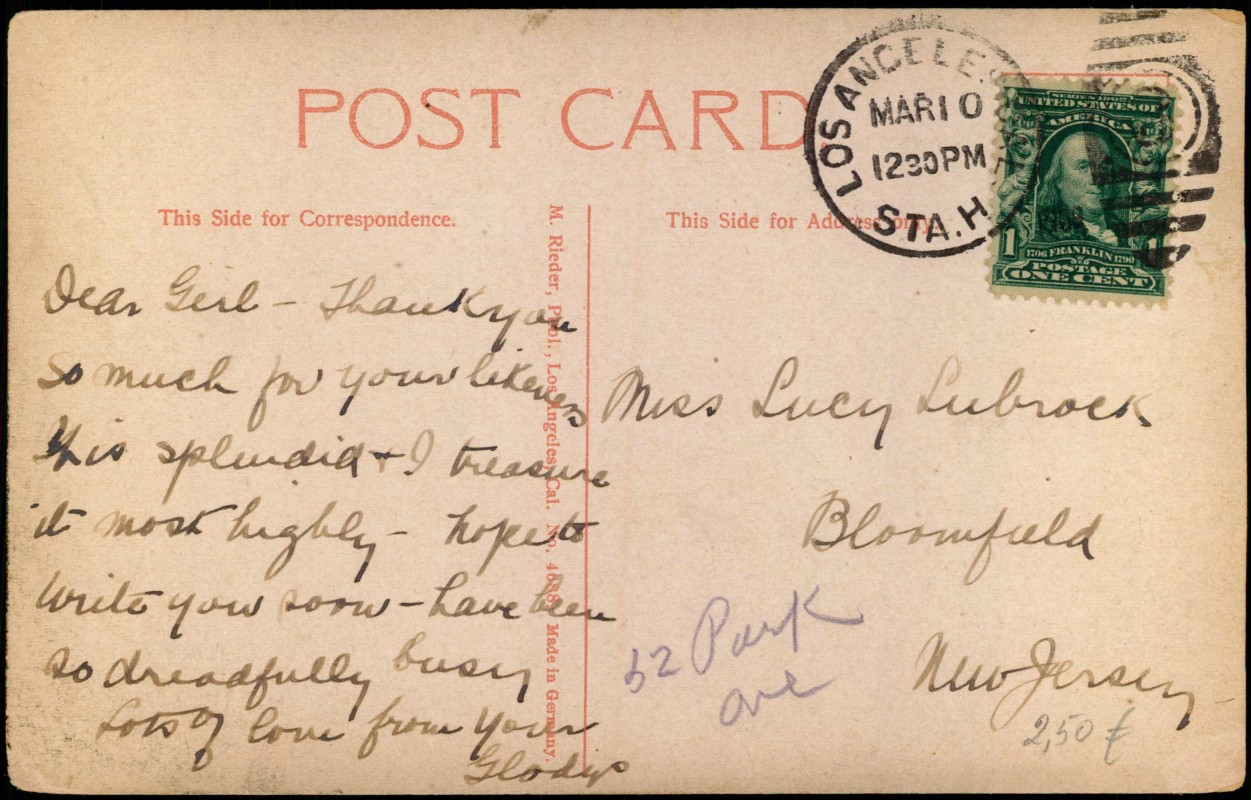 POST CARD.
LOS ANGELES
MAR 10
1230 PM
STA. H
1908
SERIES 1902
UNITED STATES OF
AMERICA
1
1
1706 FRANKLIN 1790
POSTAGE
ONE CENT
This Side for Correspondence.
This Side for Address only.
M. Rieder, Publ., Los Angeles, Cal. No. 4638 Made in Germany.
Dear Girl – Thank you
so much for your likeness
It is splendid + I treasure
it most highly – hope to
write you soon – have been
so dreadfully busy
Lots of love from your
Gladys
Miss Lucy Lubrock
Bloomfield
New Jersey
52 Park
ave
2,50 €